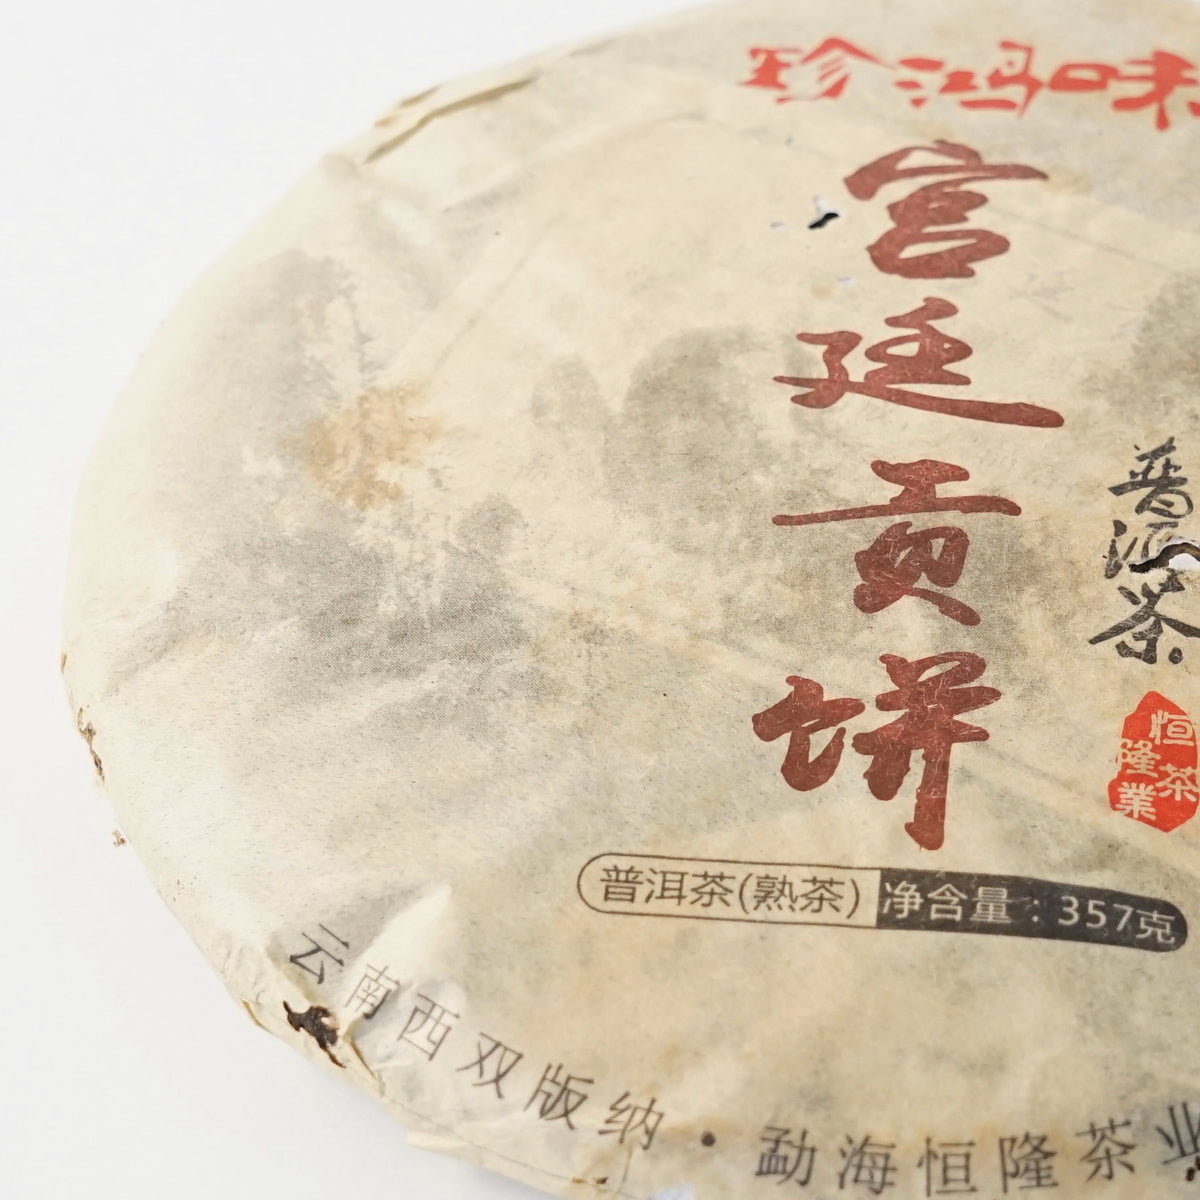 珍鸿味
宫廷贡饼
普洱茶
恒隆茶業
普洱茶(熟茶) 净含量：357克
云南西双版纳·勐海恒隆茶业